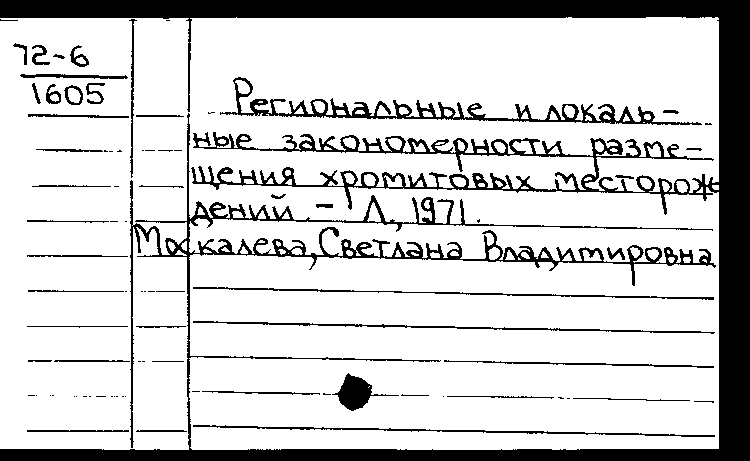 72-6
1605
Региональные и локаль-
ные закономерности разме-
щения хромитовых месторож
дений. - Л., 1971.
Москалева, Светлана Владимировна